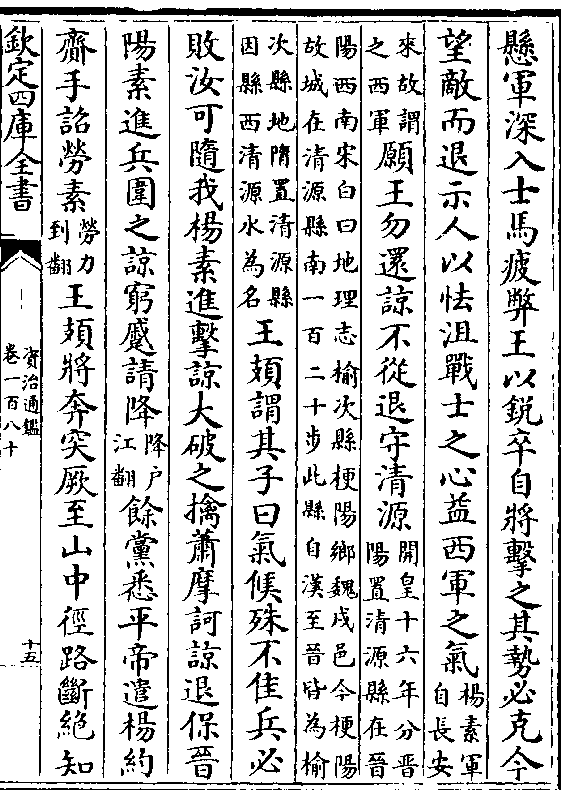 懸軍深入士馬疲弊王以銳卒自將擊之其勢必克今
望敵而退示人以怯沮戰士之心益西軍之氣楊素軍自長安
來故謂之西軍願王勿還諒不從退守清源開皇十六年分晉陽置清源縣在晉
陽西南宋白曰地理志榆次縣梗陽鄉魏戌邑今梗陽故城在清源縣南一百二十步此縣自漢至晉皆為榆
次縣地隋置清源縣因縣西清源水為名王頍謂其子曰氣候殊不佳兵必
敗汝可隨我楊素進擊諒大破之擒蕭摩訶諒退保晉
陽素進兵圍之諒窮蹙請降降户江翻餘黨悉平帝遣楊約
齎手詔勞素勞力到翻王頍將奔突厥至山中徑路斷絕知
欽定四庫全書
資治通鑑
卷一百八十
十五